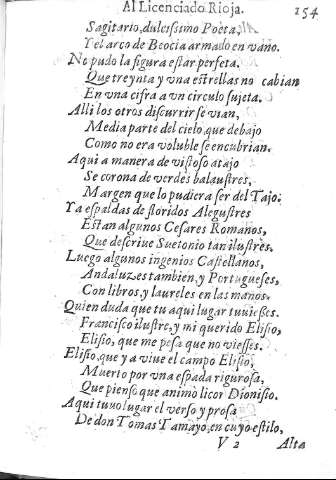 Al Licenciado Rioja. 154
Sagitario, dulcissimo Poeta,
Y el arco de Beocia armado en vano.
No pudo la figura estar perfeta,
Que treynta y vna estrellas no cabian
En vna cifra a vn circulo sujeta.
Alli los otros discurrir se vian,
Media parte del cielo, que debajo
Como no era voluble se encubrian.
Aqui a manera de vistoso atajo
Se corona de verdes balaustres,
Margen que lo pudiera ser del Tajo:
Ya espaldas de floridos Alegustres
Estan algunos Cesares Romanos,
Que descriue Suetonio tan ilustres.
Luego algunos ingenios Castellanos,
Andaluzes tambien, y Portugueses,
Con libros, y laureles en las manos.
Quien duda que tu aqui lugar tuuiesses.
Francisco ilustre, y mi querido Elisio,
Elisio, que me pesa que no viesses.
Elisio, que ya viue el campo Elisio,
Muerto por vna espada rigurosa,
Que pienso que animò licor Dionisio.
Aqui tuuo lugar el verso y prosa
De don Tomas Tamayo, en cuyo estilo,
V 2 Alta